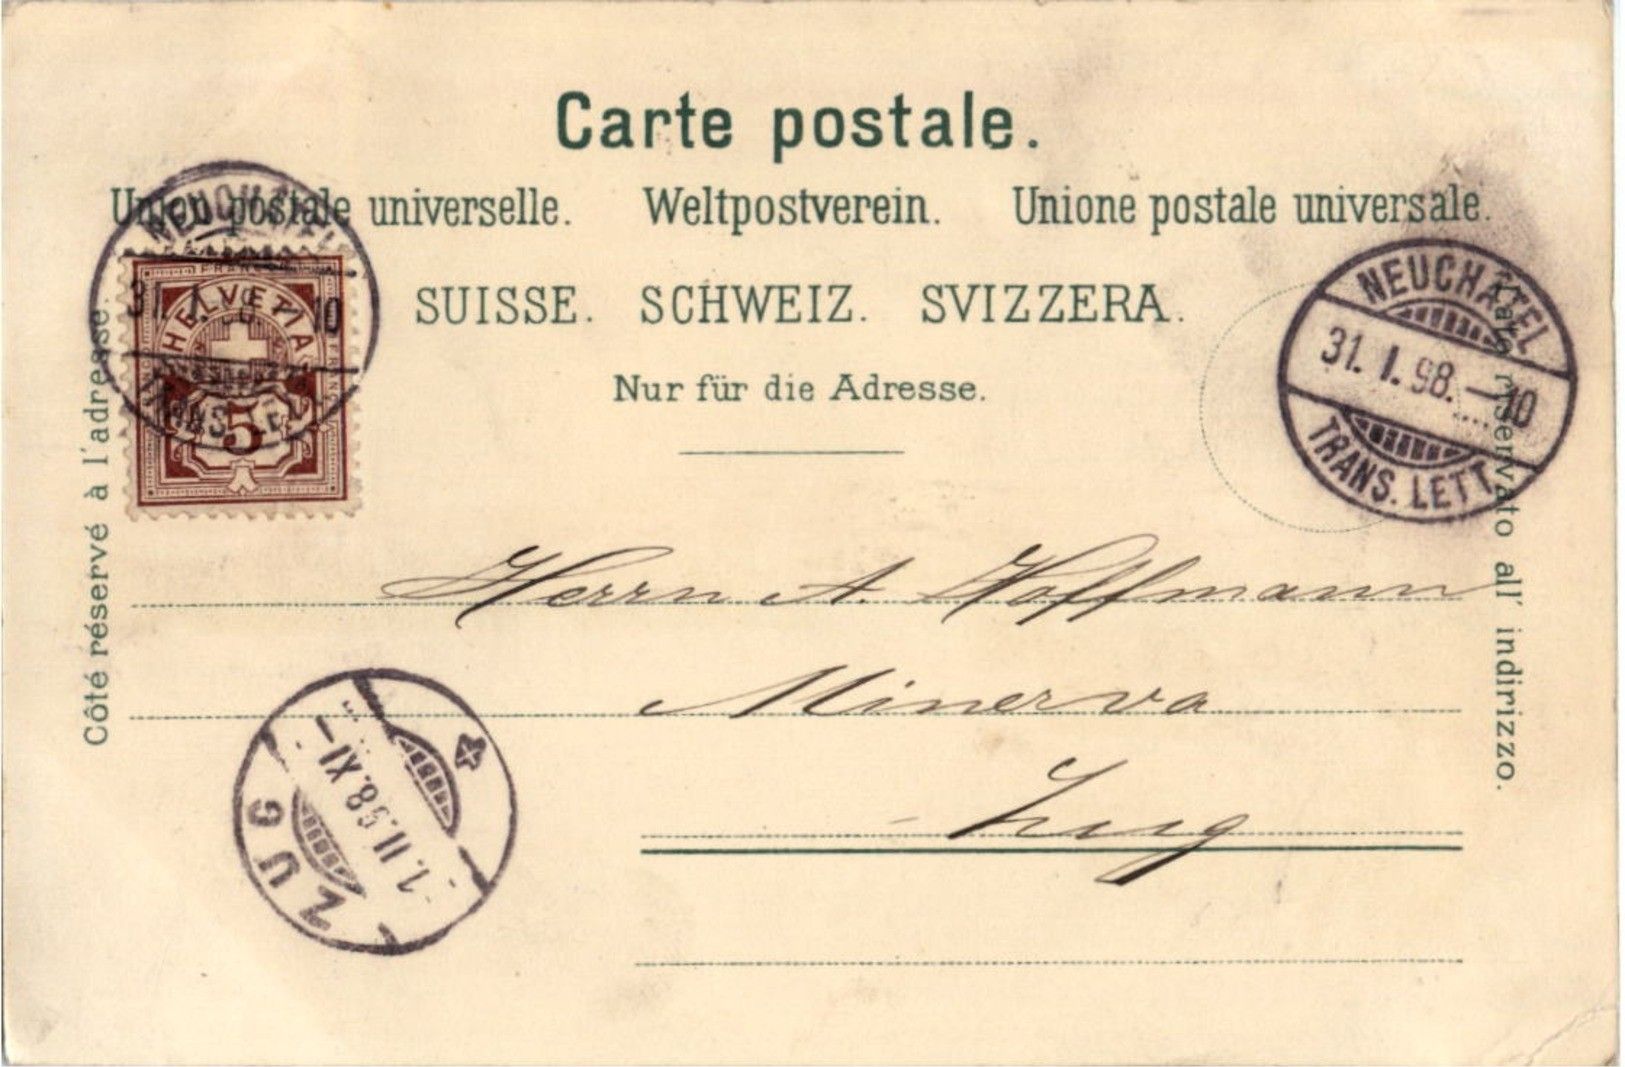 Carte postale.
Union postale universelle. Weltpostverein. Unione postale universale.
SUISSE. SCHWEIZ. SVIZZERA.
Nur für die Adresse.
Côté réservé à l'adresse.
NEUCHATEL
31. I. 10
TRANS. LETT.
FRANCO
HELVETIA
5
NEUCHATEL
31. I. 98.–10
TRANS. LETT.
riservato all' indirizzo.
Herrn A. Hoffmann
Minerva
Zug
1. II. 98. XI–
ZUG